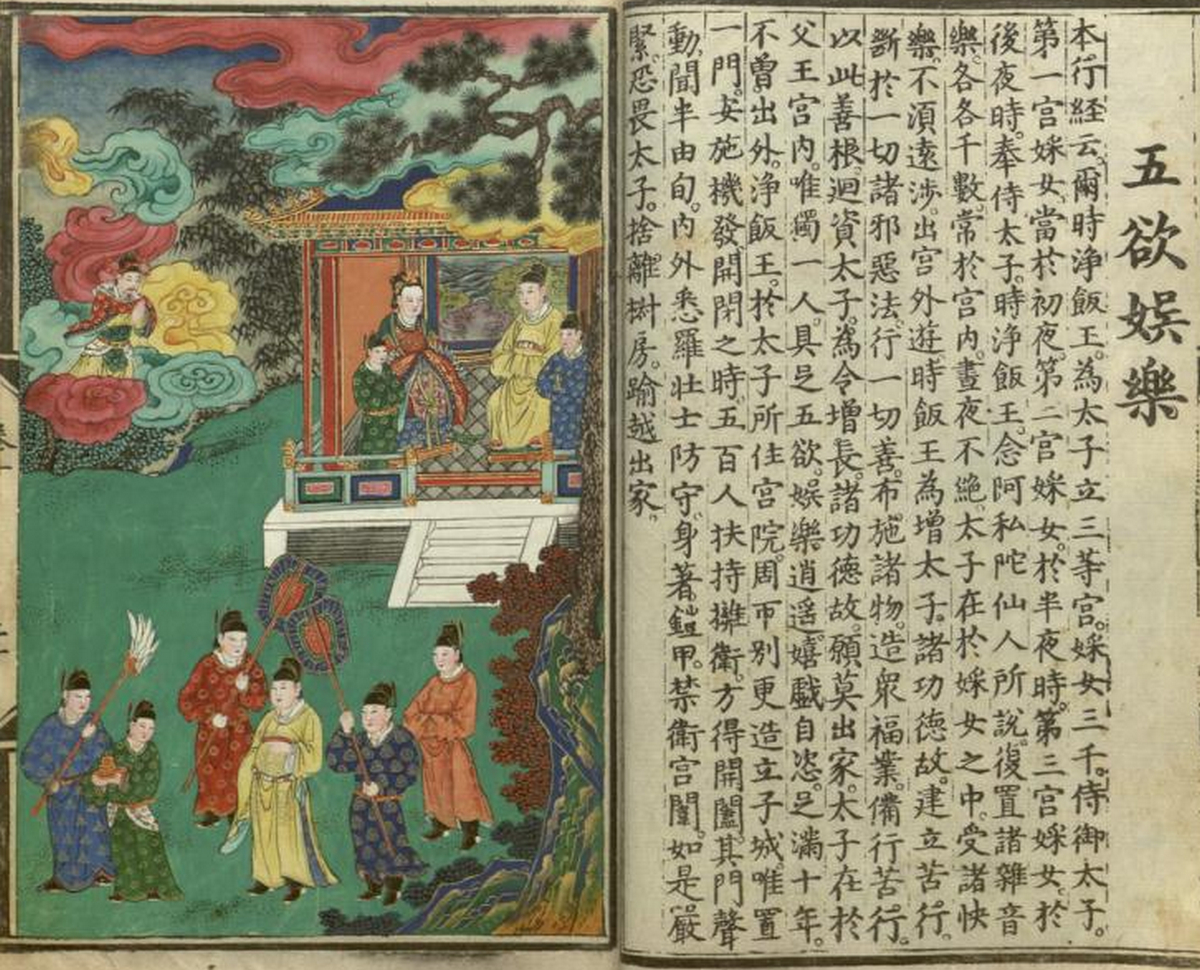 五欲娛樂
本行経云。爾時淨飯王。為太子立三等宮。婇女三千。侍御太子。
第一宮婇女。當於初夜。第二宮婇女。於半夜時。第三宮婇女。於
後夜時。奉侍太子。時淨飯王。念阿私陀仙人所說。復置諸雜音
樂。各各千數。常於宮内。晝夜不絶。太子在於婇女之中。受諸快
樂。不湏遠渉。出宮外遊。時飯王為增太子。諸功德故。建立苦行。
斷於一切諸邪惡法。行一切善。布施諸物。造衆福業。備行苦行。
以此善根。迴資太子。為令增長。諸功德故。願莫出家。太子在於
父王宮内。唯獨一人。具足五欲。娛樂逍遥。嬉戲自恣。足滿十年。
不曽出外。淨飯王。於太子所住宮院。周帀別更造立子城。唯置
一門。安施機發。開閉之時。五百人扶持擁衛。方得開闔。其門聲
動。聞半由旬。内外悉羅壯士防守。身著鎧甲。禁衛宮闈。如是嚴
緊。恐畏太子。捨離樹房。踰越出家。